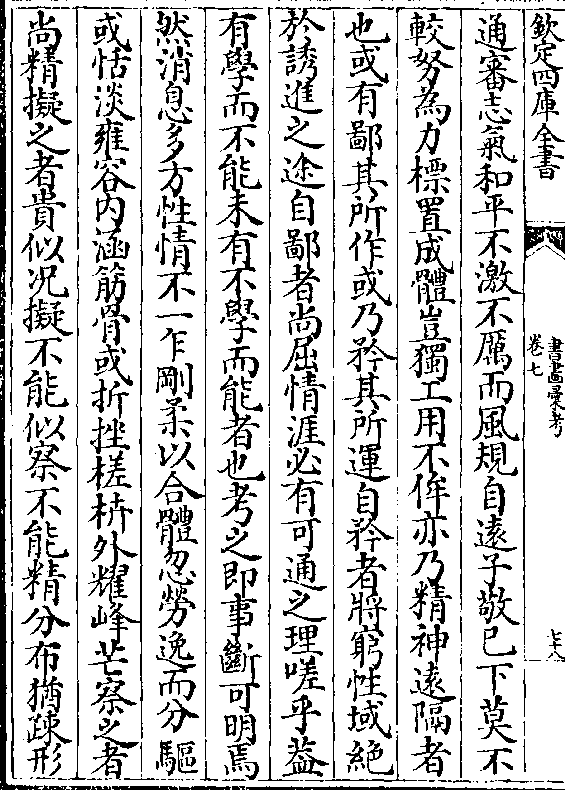 欽定四庫全書
書畫彙考
卷七
七十八
通審志氣和平不激不厲而風規自逺子敬已下莫不
較努為力標置成體豈獨工用不侔亦乃精神逺隔者
也或有鄙其所作或乃矜其所運自矜者將窮性域絶
於誘進之途自鄙者尚屈情涯必有可通之理嗟乎葢
有學而不能未有不學而能者也考之即事斷可明焉
然消息多方性情不一乍剛柔以合體忽勞逸而分驅
或恬淡雍容内涵筋骨或折挫槎枿外耀峰芒察之者
尚精擬之者貴似况擬不能似察不能精分布猶疎形